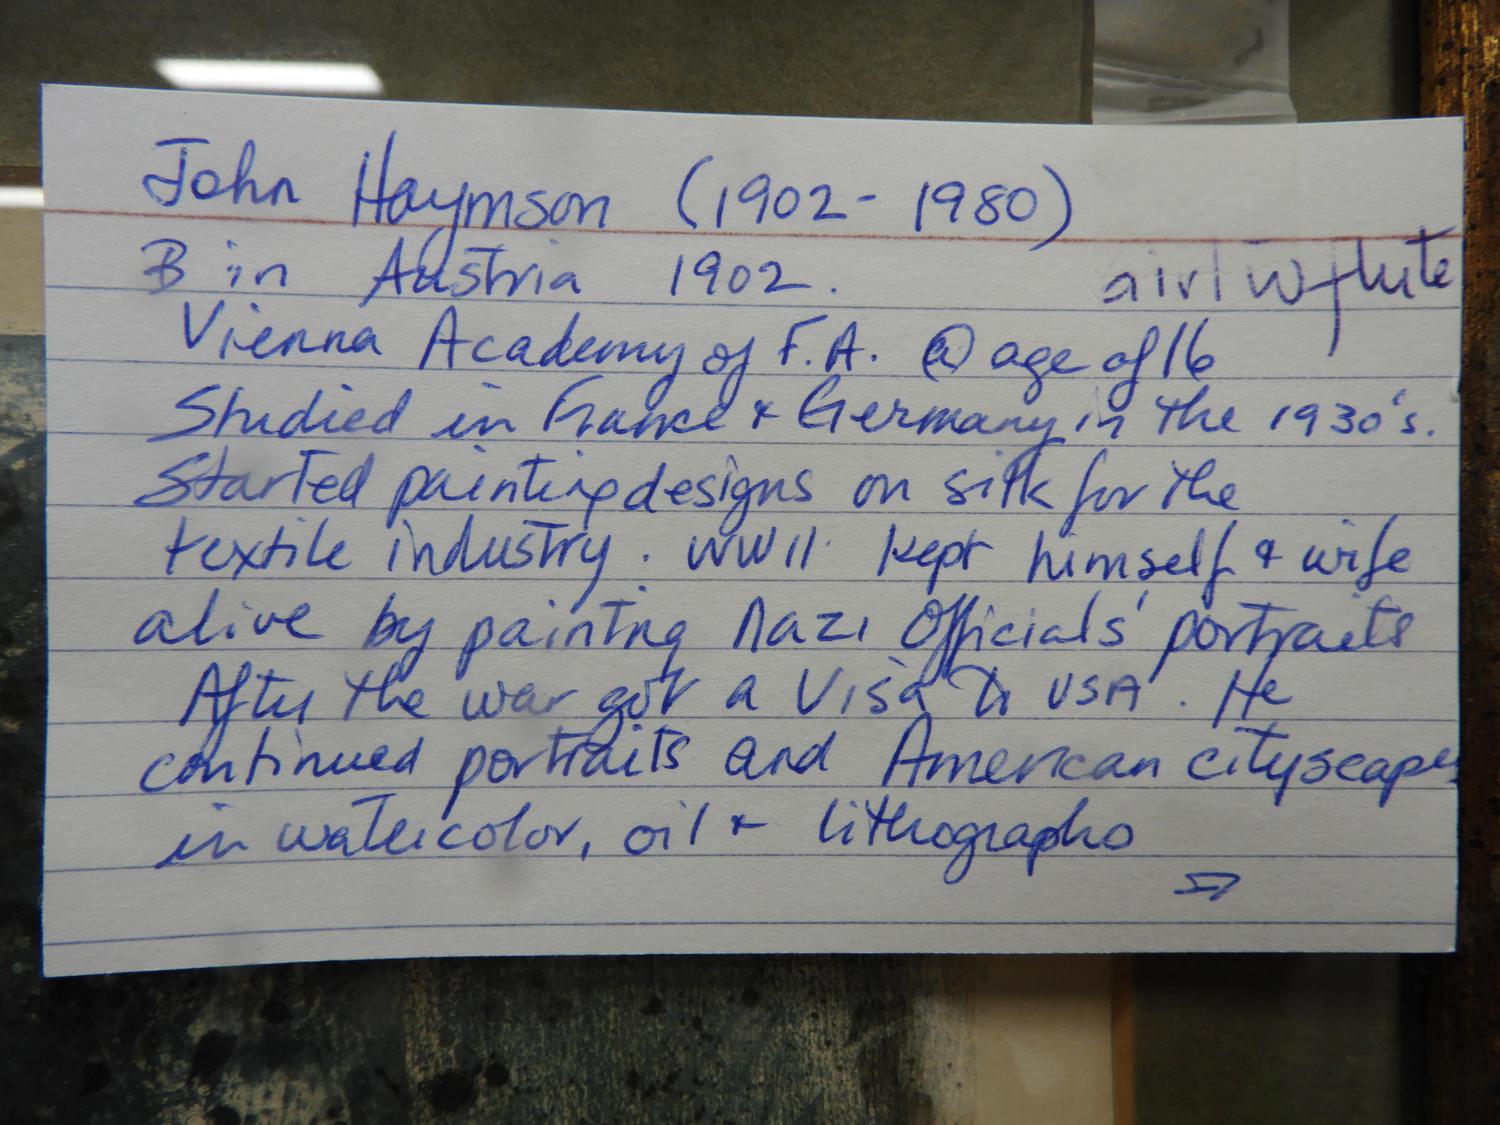 John Haymson (1902-1980)
B in Austria 1902. airl w flute
Vienna Academy of F.A. @ age of 16
Studied in France & Germany in the 1930's.
Started painting designs on silk for the
textile industry. WWII. kept himself & wife
alive by painting Nazi Officials' portraits
After the war got a Visa to USA. He
continued portraits and American cityscapes
in watercolor, oil & lithographo
⇒